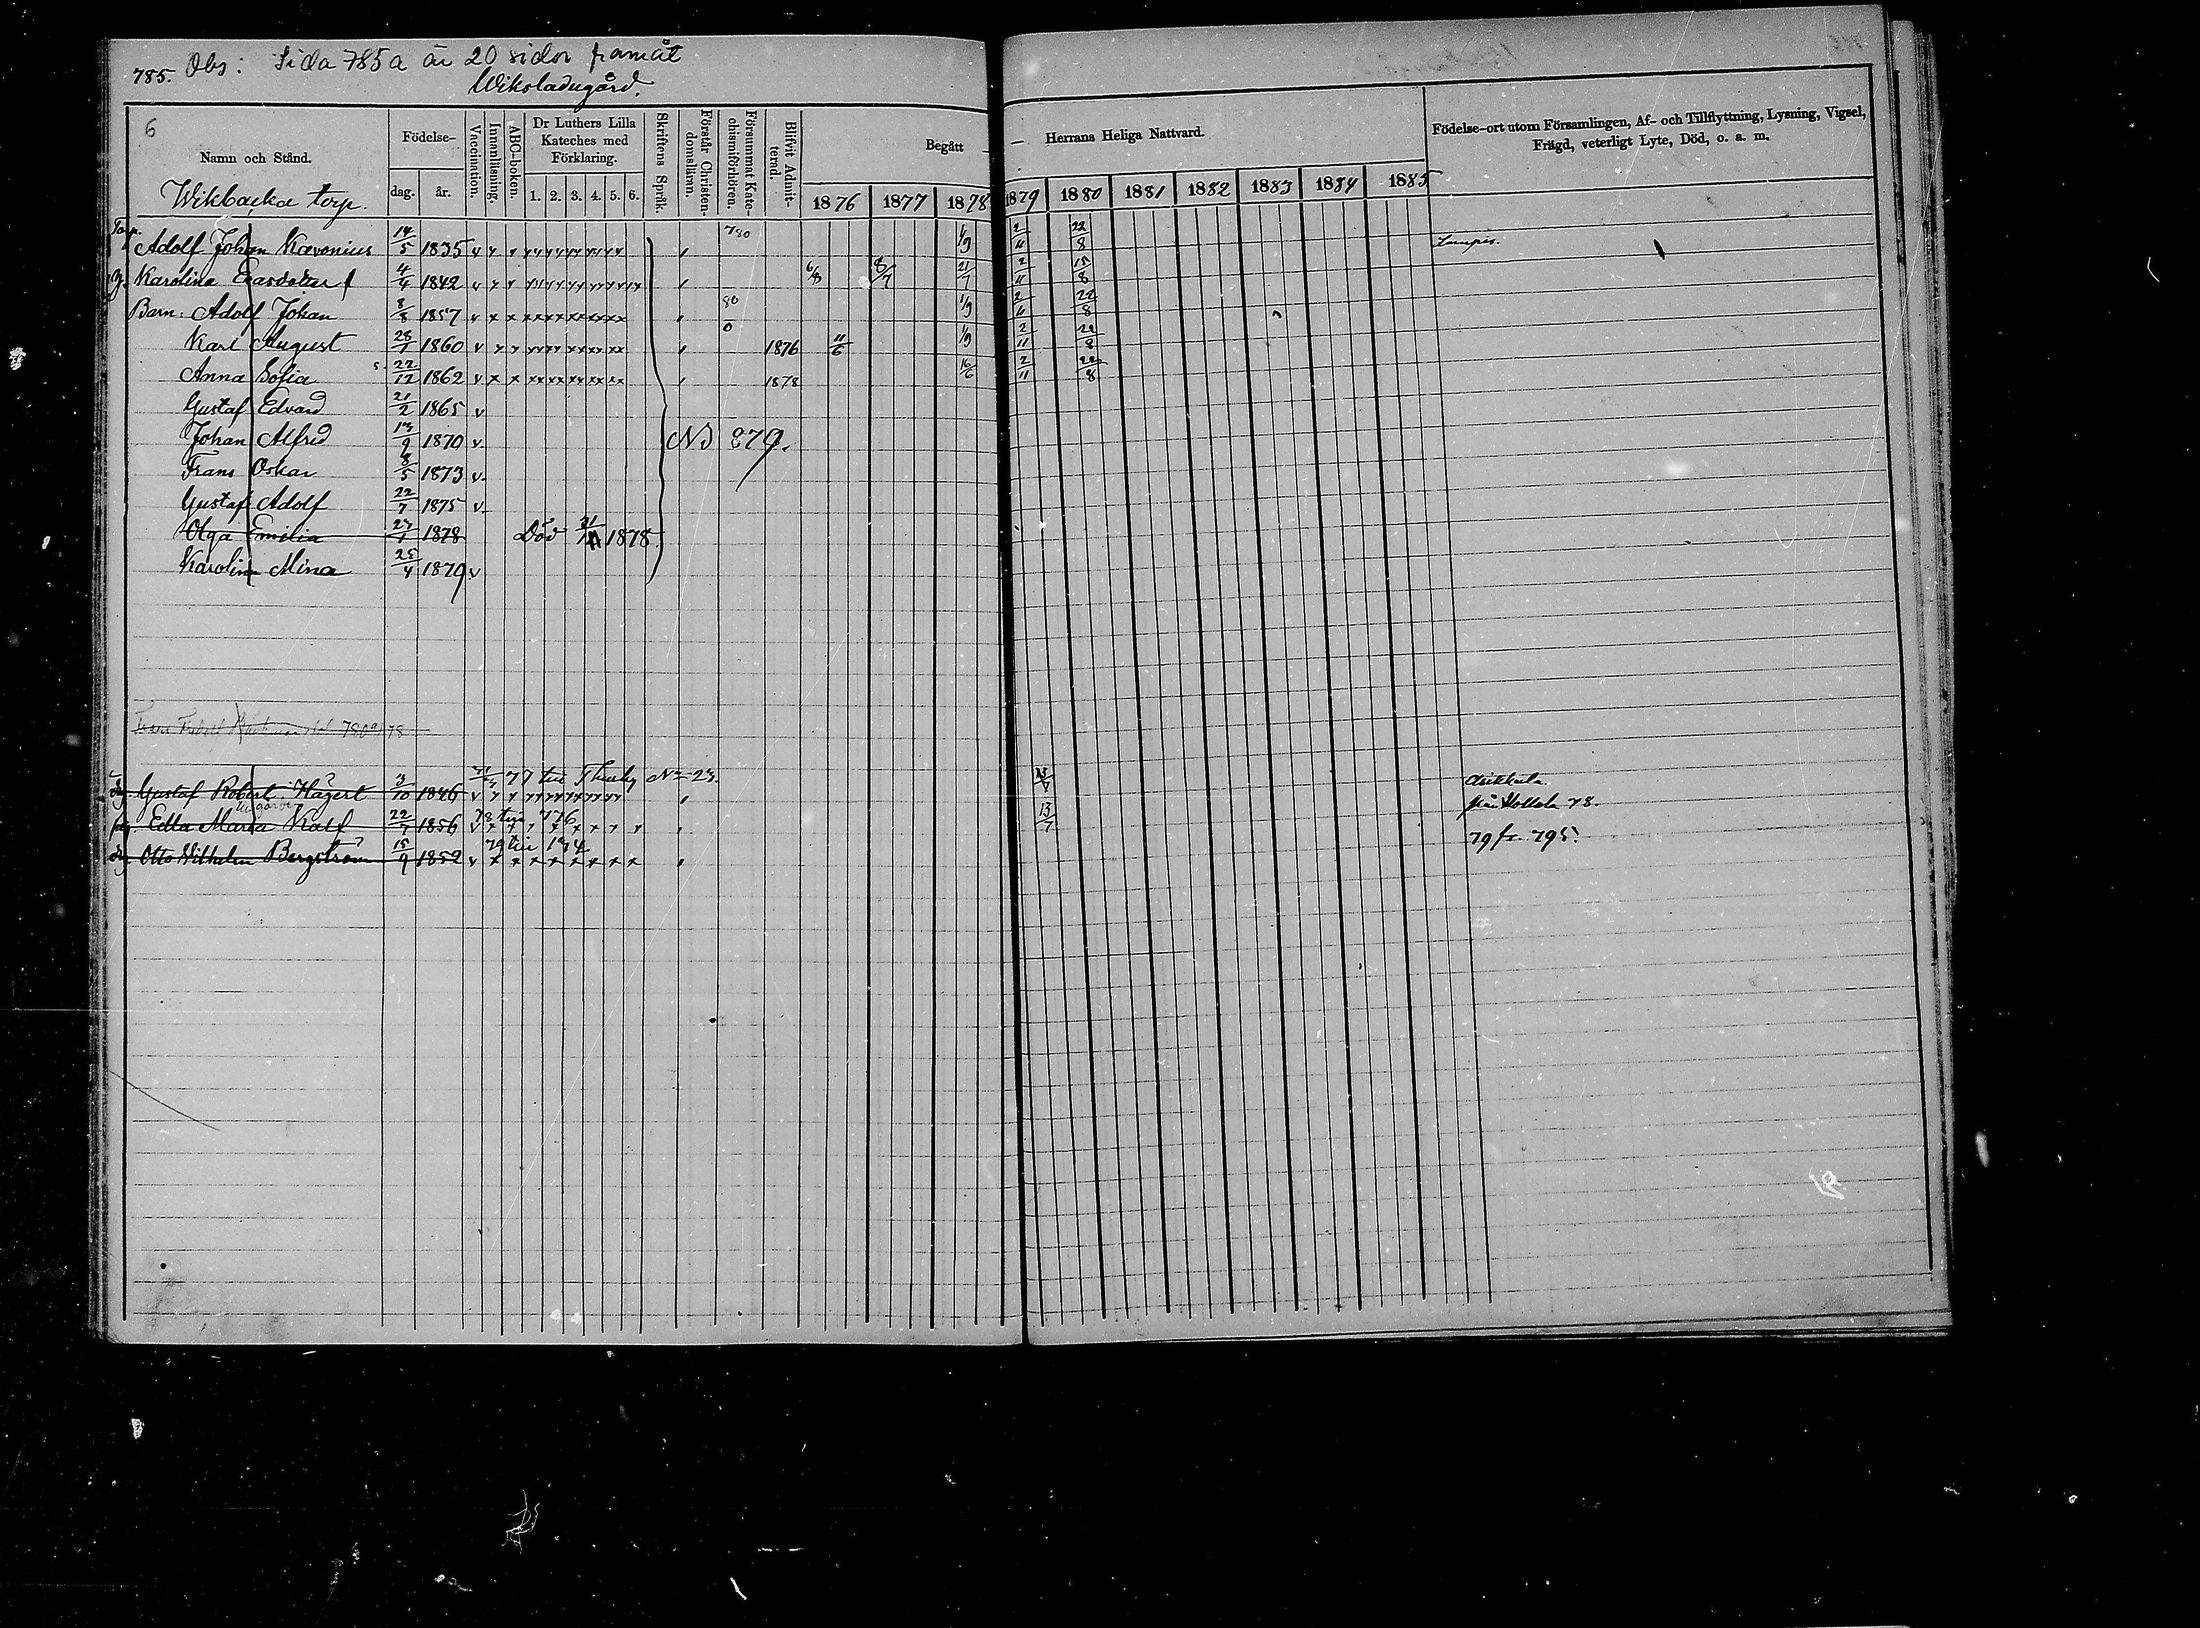 785. Obs: Sida 785a är 20 sidor framåt
Wiksladugård.
6
Namn och Stånd.
Födelse-
dag. år.
Vaccination.
Innanläsning.
ABC-boken.
Dr Luthers Lilla Kateches med Förklaring.
1. 2. 3. 4. 5. 6.
Skriftens Språk.
Förstår Christendomsläran.
Försummat Katechismiförhören.
Blifvit Admitterad.
Begått — — Herrans Heliga Nattvard.
1876 1877 1878 1879 1880 1881 1882 1883 1884 1885
Födelse-ort utom Församlingen, Af- och Tillflyttning, Lysning, Vigsel,
Frägd, veterligt Lyte, Död, o. a. m.
Wikbacka torp.
Torp. Adolf Johan Kævonius 14/5 1835 v 780 1/9 2/11 22/8 Lampis.
Karolina 4/4 1842 v 6/8 8/7 21/7 2/11 15/8
Barn: Adolf Johan 8/8 1857 v 80/0 1/9 2/11 22/8
Karl August 28/1 1860 v 1876 11/6 1/9 2/11 22/8
Anna Sofia 22/12 1862 v 1878 16/6 2/11 22/8
Gustaf Edvard 21/2 1865 v
Johan Alfred 13/9 1870 v N3 879.
Frans Oskar 8/5 1873 v
Gustaf Adolf 22/7 1875 v
Olga Emilia 23/1 1878 Död 1878
Karolina Mina 25/4 1879 v
Gustaf Robert Hägert 3/10 1846 v 77 till Thusby N= 23. 13/7 Asikkala.
Edla Maria Kalf 22/7 1856 v 78 till 776 13/7 från Hollola 78.
Otto Wilhelm Bergström 15/9 1852 v 79 till 79 fr. 795.